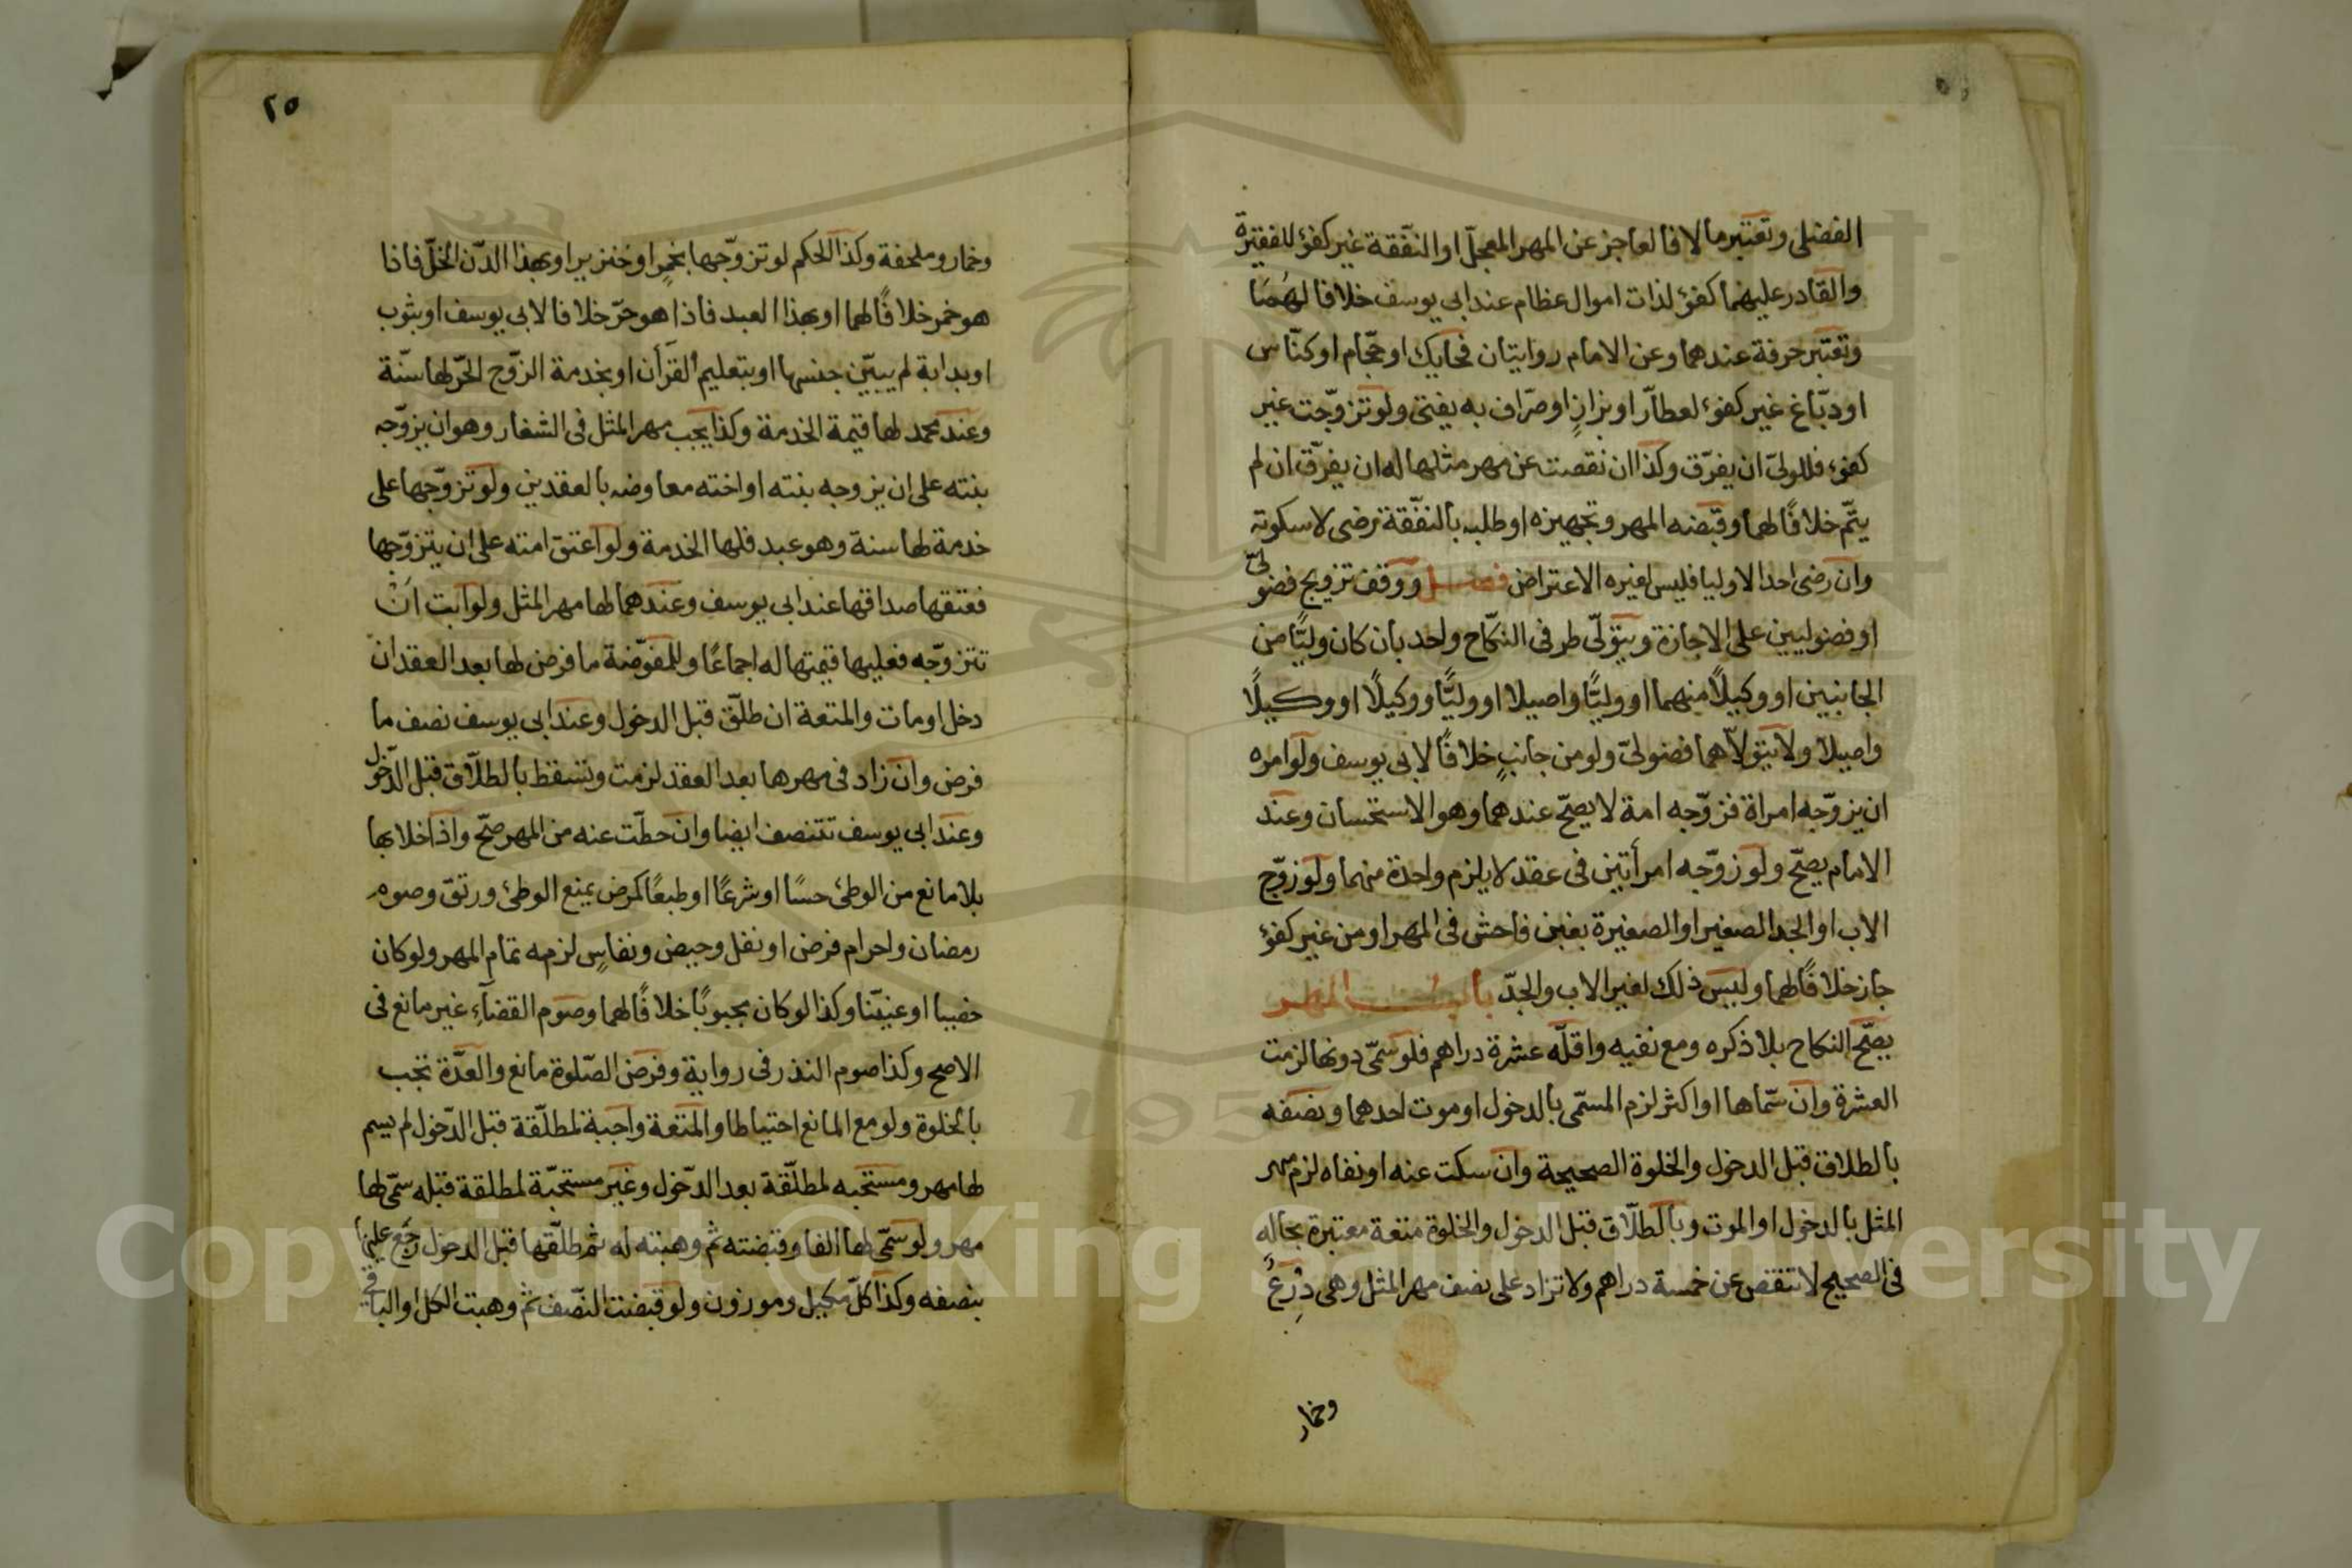 الفضلى وتعتبر مالا فالعاجز عن المهر المعجّل او النّفقة غير كفؤ للفقيرة
والقادر عليهما كفؤ لذات اموال عظام عند ابى يوسف خلافا لهما
وتعتبر حرفة عندهما وعن الامام روايتان فحايك او حجّام او كنّاس
او دبّاغ غير كفؤ لعطاّر او بزازٍ او صرّاف به يفتى ولو تزوّجت غير
كفؤ فللولىّ ان يفرّق وكذا ان نقصت عن مهر مثلها له ان يفرّق ان لم
يتّم خلافًا لهما وقبضه المهر وتجهيزه او طلبه بالنفّقة رضى لا سكوته
وان رضى احد الاوليا فليس لغيره الاعتراض فصل ووقف تزويج فضولىّ
او فضوليين على الاجازة ويتولّى طرفى النكّاح واحد بان كان وليًّا من
الجانبين او وكيلًا منهما او وليًّا واصيلا او وليًّا ووكيلًا او وكيلًا
واصيلا ولا يتولاّهما فضولىّ ولو من جانبٍ خلافًا لابى يوسف ولو امره
ان يزوّجه امراة فزوّجه امة لا يصحّ عندهما وهو الاستحسان وعند
الامام يصحّ ولو زوّجه امرأتين فى عقد لا يلزم واحدة منهما ولو زوّج
الاب او الجد الصغير او الصغيرة بغبن فاحش فى المهر او من غير كفؤ
جاز خلافًا لهما وليس ذلك لغير الاب والجدّ باب المهر
يصّح النكاح بلا ذكره ومع نفيه واقلّه عشرة دراهم فلو سمّى دونها لزمت
العشرة وان سمّاها او اكثر لزم المسمّى بالدخول او موت احدهما ونصفه
بالطلاق قبل الدخول والخلوة الصحيحة وان سكت عنه او نفاه لزم مهر
المثل بالدخول او الموت وبالطلّاق قبل الدخول والخلوة متعة معتبرة بحاله
فى الصحيح لا تنقص عن خمسة دراهم ولا تزاد على نصف مهر المثل وهى دِرْعٌ
وخمار
٢٥
وخمار وملحفة وكذا الحكم لو تزوّجها بخمرٍ او خنزير او بهذا الدّن الخلّ فاذا
هو خمر خلافًا لهما او بهذا العبد فاذا هو حرّ خلافا لابى يوسف او بثوب
او بدابة لم يبيّن جنسها او بتعليم القرأن او بخدمة الزّوج الحّر لها سنّة
وعند محمد لها قيمة الخدمة وكذا يجب مهر المثل فى الشغار وهو ان يزوّجه
بنته على ان يزوجه بنته او اخته معاوضه بالعقدين ولو تزوّجها على
خدمة لها سنة وهو عبد فلها الخدمة ولو اعتق امته على ان يتزوّجها
فعتقها صداقها عند ابى يوسف وعندهما لها مهر المثل ولو ابت اَنْ
تتزوّجه فعليها قيمتها له اجماعًا وللمفوّضة ما فرض لها بعد العقد ان
دخل او مات والمتعة ان طلّق قبل الدخول وعند ابى يوسف نصف ما
فرض وان زاد فى مهرها بعد العقد لزمت وتسقط بالطلّاق قبل الدّخول
وعند ابى يوسف تتنصف ايضا وان حطّت عنه من المهر صحّ واذا خلا بها
بلا مانع من الوطئ حسًا او شرعًا او طبعًا كمرض يمنع الوطئ ورتق وصوم
رمضان واحرام فرض او نفل وحيض ونفاسٍ لزمه تمام المهر ولو كان
خصيا او عنيّنا وكذا لو كان مجبوبًا خلافًا لهما وصوم القضآء غير مانع فى
الاصح وكذا صوم النذر فى رواية وفرض الصّلوة مانع والعدّة تجب
بالخلوة ولو مع المانع احتياطا والمتعة واجبة لمطلّقة قبل الدّخول لم يسم
لها مهر ومستحبه لمطلّقة بعد الدّخول وغير مستحبّة لمطلقة قبله سمّى لها
مهر ولو سمّى لها الفا وقبضته ثم وهبته له ثم طلّقها قبل الدخول رجع عليها
بنصفه وكذا كلّ مكيل وموزون ولو قبضت النّصف ثم وهبت الكل او الباقى
Copyright © King Saud University
195